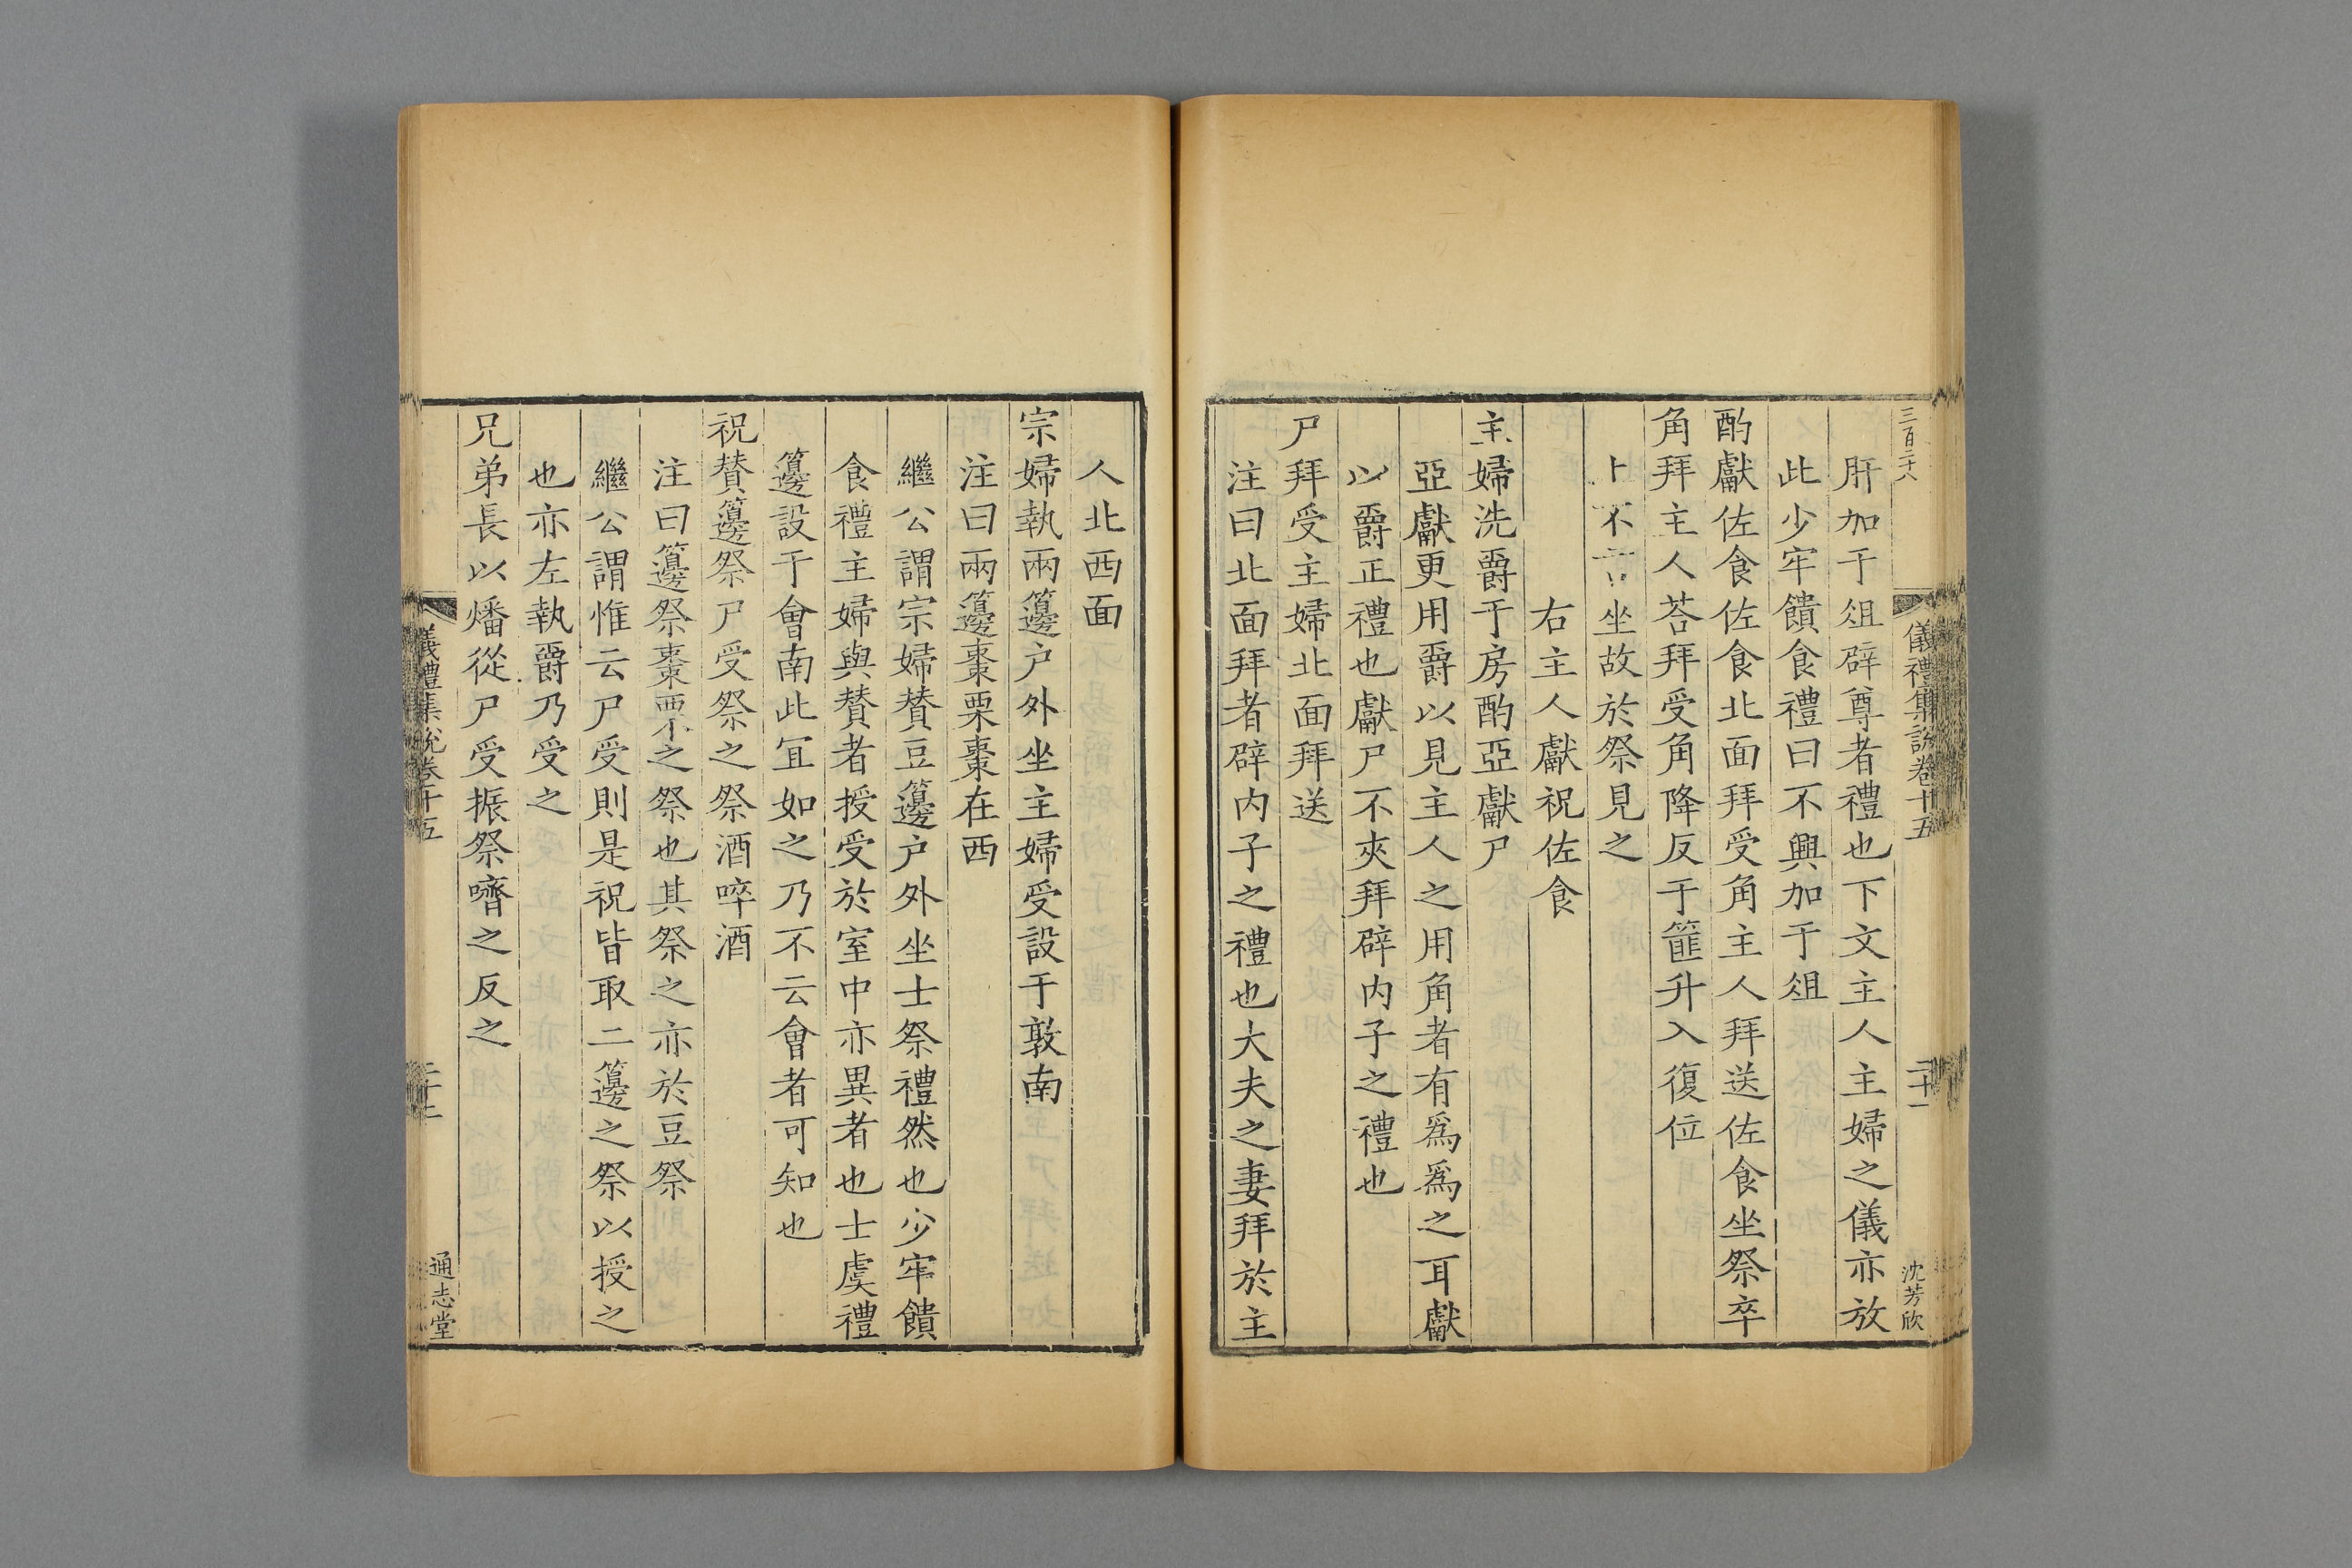 三百二十八
儀禮集說卷十五
二十一
沈芳欣
肝加于俎辟尊者禮也下文主人主婦之儀亦放
此少牢饋食禮曰不興加于俎
酌獻佐食佐食北面拜受角主人拜送佐食坐祭卒
角拜主人荅拜受角降反于篚升入復位
上不言坐故於祭見之
右主人獻祝佐食
主婦洗爵于房酌亞獻尸
亞獻更用爵以見主人之用角者有爲爲之耳獻
以爵正禮也獻尸不夾拜辟内子之禮也
尸拜受主婦北面拜送
注曰北面拜者辟内子之禮也大夫之妻拜於主
人北西面
宗婦執兩籩户外坐主婦受設于敦南
注曰兩籩棗栗棗在西
繼公謂宗婦贊豆籩户外坐士祭禮然也少牢饋
食禮主婦與贊者授受於室中亦異者也士虞禮
籩設于會南此宜如之乃不云會者可知也
祝贊籩祭尸受祭之祭酒啐酒
注曰籩祭棗栗之祭也其祭之亦於豆祭
繼公謂惟云尸受則是祝皆取二籩之祭以授之
也亦左執爵乃受之
兄弟長以燔從尸受振祭嚌之反之
儀禮集說卷十五
通志堂